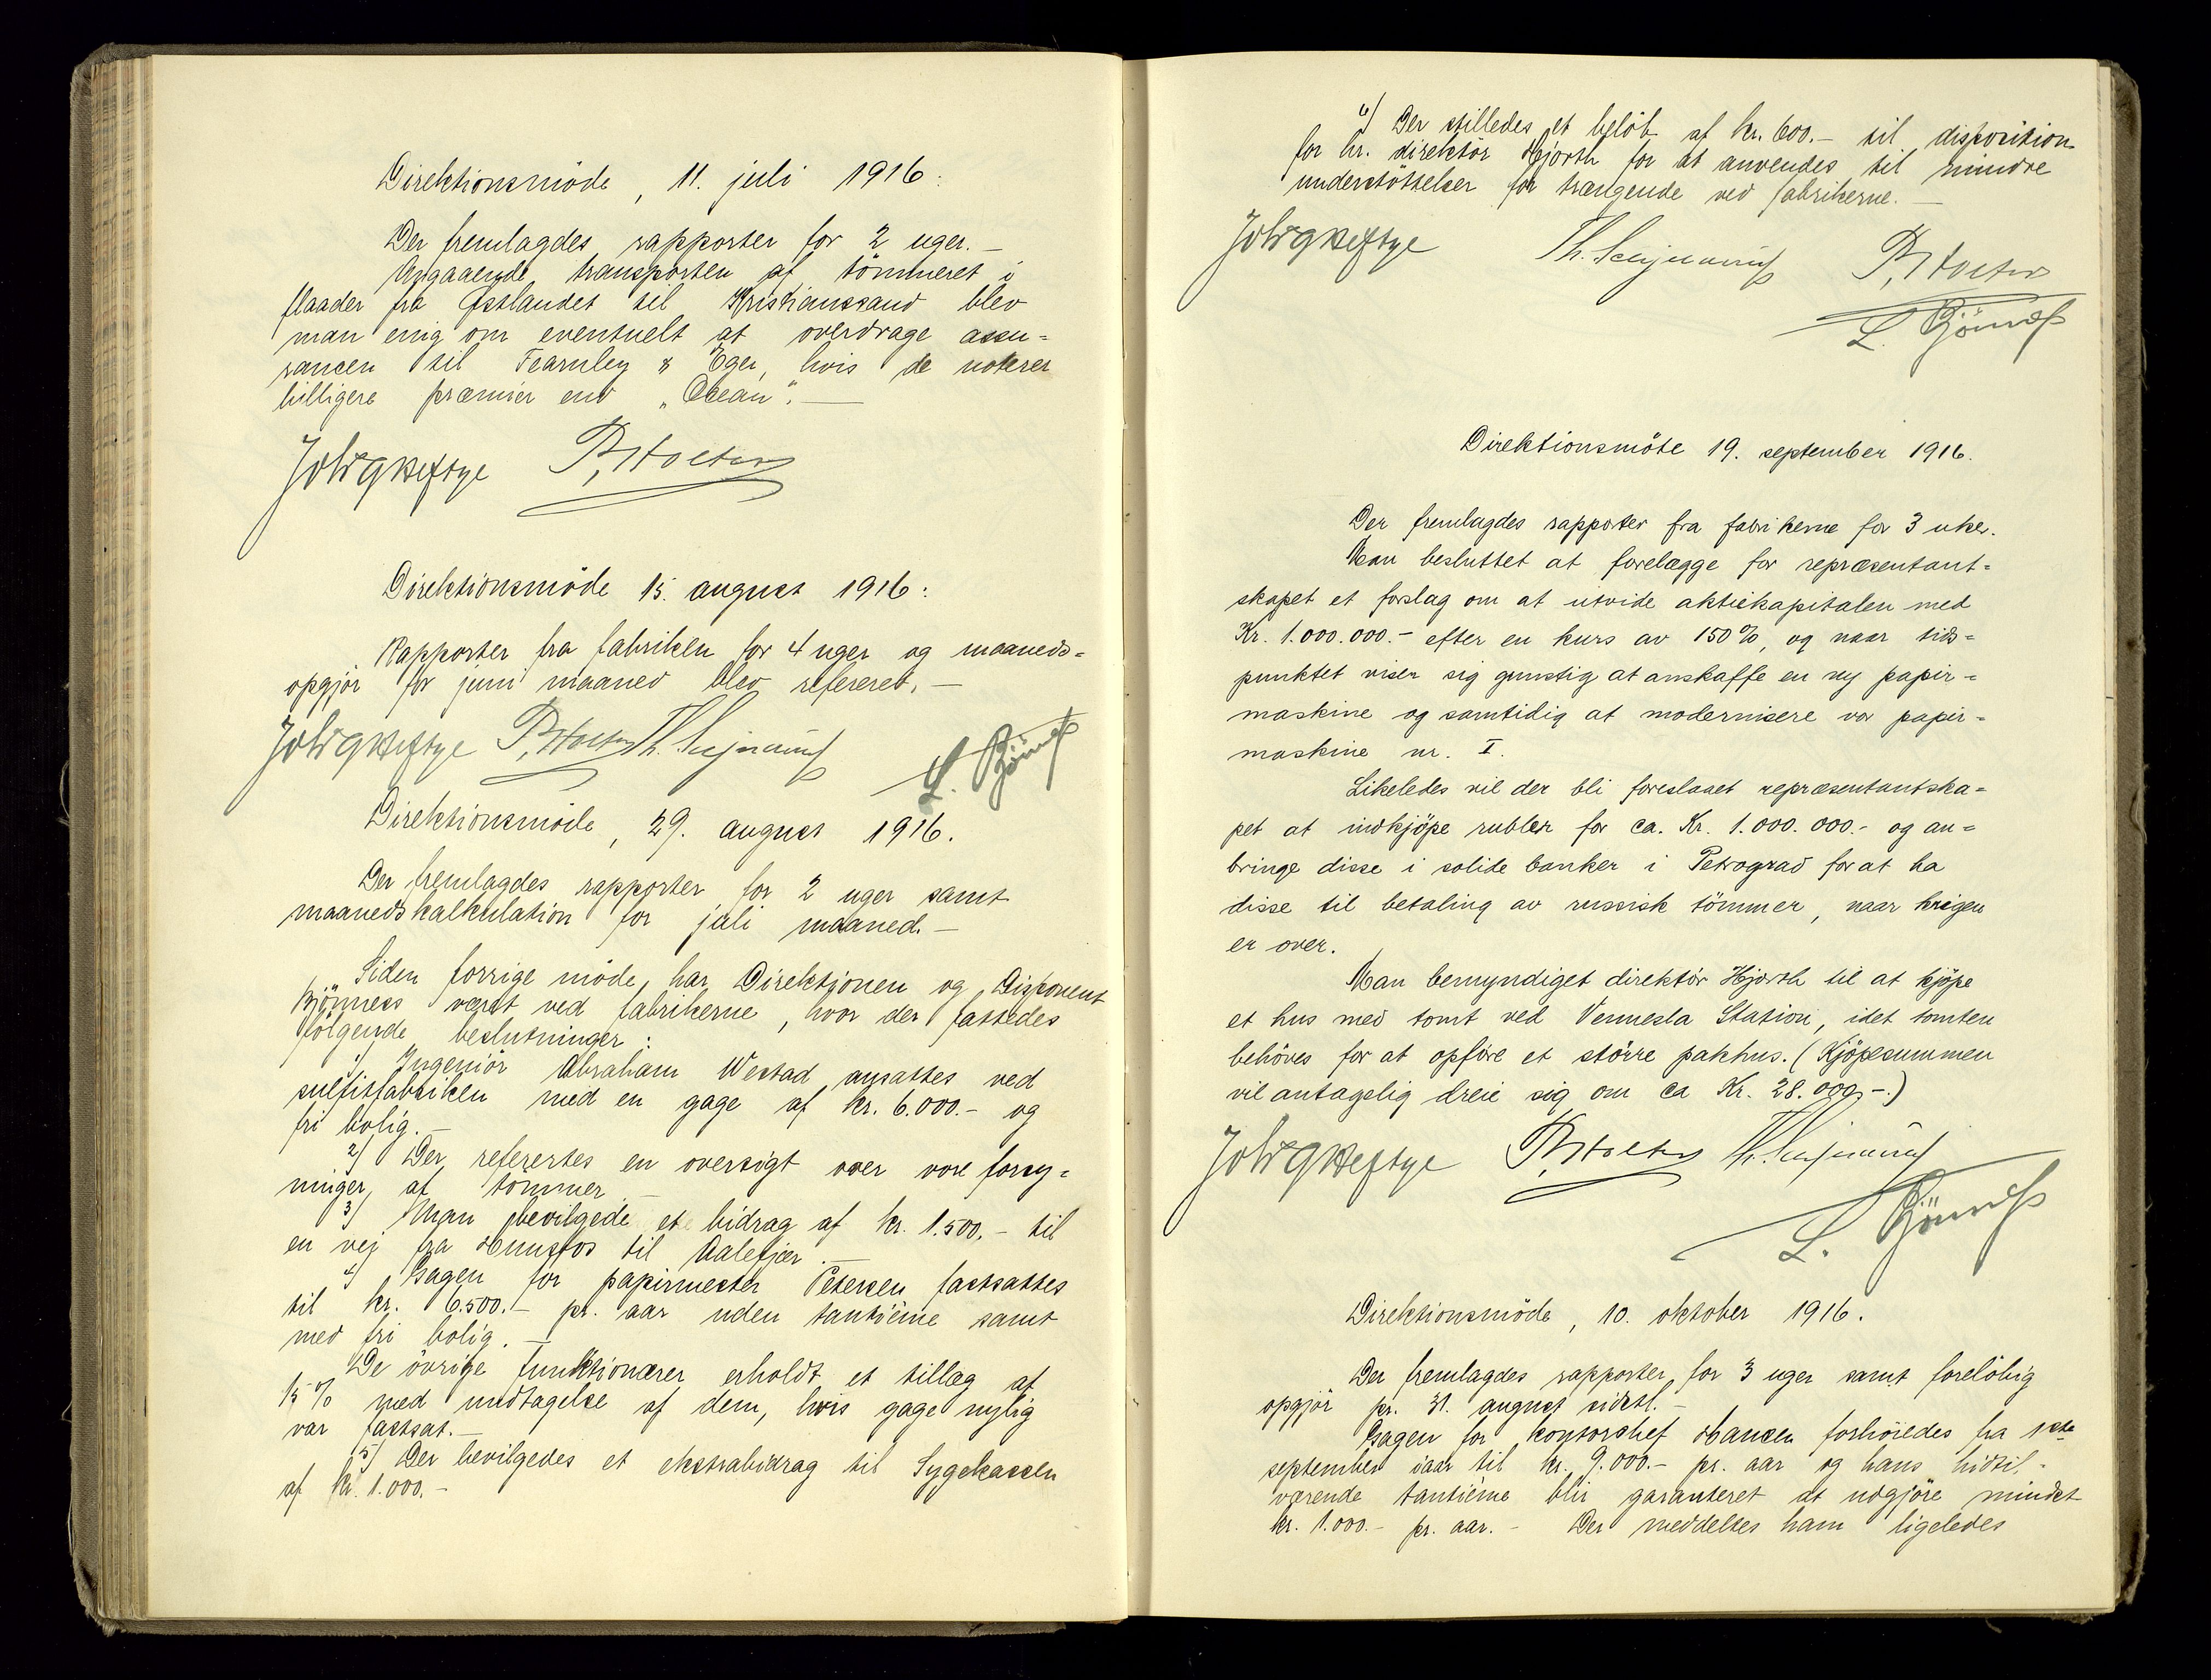 Direktionsmöde, 11. juli 1916:
Der fremlagdes rapporter for 2 uger.—
Angaaende transporten af tömmeret i
flaader fra Østlandet til Kristianssand blev
man enig om eventuelt at overdrage assu=
rancen til Fearnley & Eger, hvis de noterer
billigere præmier end „Ocean".—
Joh. G. Heftye P. Holter
Direktionsmöde 15. august 1916:
Rapporter fra fabriken for 4 uger og maaneds=
opgjör for juni maaned blev refereret.—
Joh. G. Heftye P. Holter Th.
L. Bjönness
Direktionsmöde, 29. august 1916.
Der fremlagdes rapporter for 2 uger samt
maanedskalkulation for juli maaned.—
Siden forrige möde har Direktionen og Disponent
Bjönness været ved fabrikerne, hvor der fattedes
fölgende beslutninger:
1) Ingeniör Abraham Westad ansattes ved
sulfitfabriken med en gage af kr. 6.000.- og
fri bolig.—
2) Der refereredes en oversigt over vore forsy=
ninger af tömmer.—
3) Man bevilgede et bidrag af kr. 1.500.- til
en vej fra Hunsfos til Aalefjær.—
4) Gagen for papirmester Petersen fastsattes
til kr. 6.500.- pr. aar uden tantième samt
med fri bolig.—
De övrige funktionærer erholdt et tillæg af
15% med undtagelse af dem, hvis gage nylig
var fastsat.—
5) Der bevilgedes et ekstrabidrag til Sygekassen
af kr. 1.000.-
6) Der stilledes et belöb af kr. 600.- til disposition
for hr. direktör Hjorth for at anvendes til mindre
understöttelser for trængende ved fabrikerne.—
Joh. G. Heftye Th. P. Holter
L. Bjönness
Direktionsmöte 19. september 1916.
Der fremlagdes rapporter fra fabrikerne for 3 uker.
Man besluttet at forelægge for repræsentant=
skapet et forslag om at utvide aktiekapitalen med
Kr. 1.000.000.- efter en kurs av 150%, og naar tids=
punktet viser sig gunstig at anskaffe en ny papir=
maskine og samtidig at modernisere vor papir=
maskine nr. I.
Likeledes vil der bli foreslaaet repræsentantska=
pet at indkjöpe rubler for ca. Kr. 1.000.000.- og an=
bringe disse i solide banker i Petrograd for at ha
disse til betaling av russisk tömmer, naar krigen
er over.
Man bemyndiget direktör Hjorth til at kjöpe
et hus med tomt ved Vennesla Station, idet tomten
behöves for at opföre et större pakhus. (Kjöpesummen
vil antagelig dreie sig om ca Kr. 28.000.-)
Joh. G. Heftye P. Holter Th.
L. Bjönness
Direktionsmöde, 10. oktober 1916.
Der fremlagdes rapporter for 3 uger samt forelöbig
opgjör pr. 31. august sidstl.—
Gagen for kontorchef Hansen forhöiedes fra 1ste
september iaar til kr. 9.000.- pr. aar og hans hidtil-
værende tantième blir garanteret at udgjöre mindst
kr. 1.000.- pr. aar.— Der meddeltes ham ligeledes